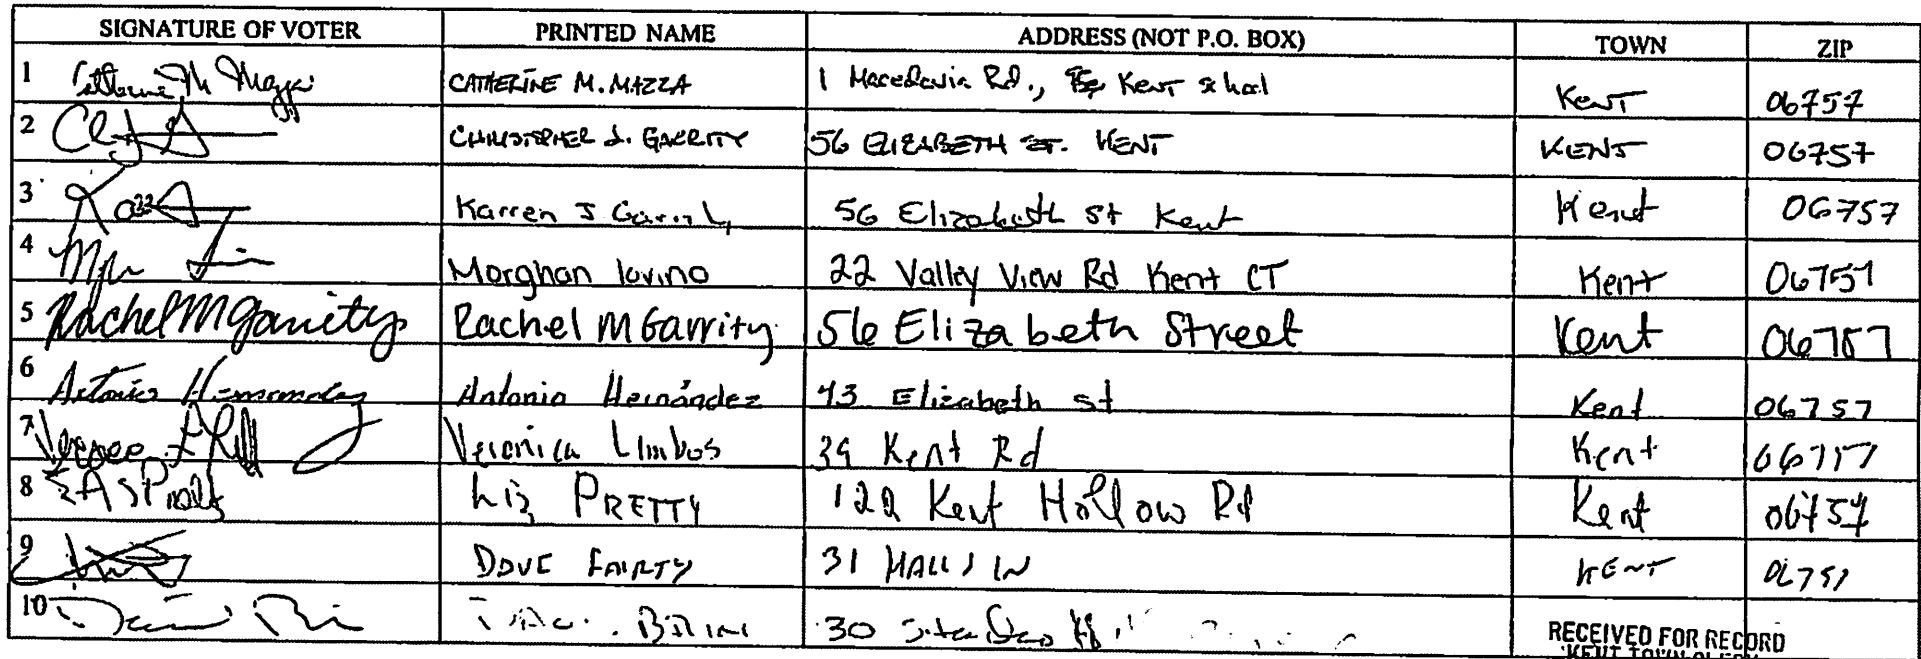 SIGNATURE OF VOTER PRINTED NAME ADDRESS (NOT P.O. BOX) TOWN ZIP
1 Catherine M Mazza CATHERINE M. MAZZA 1 Macedonia Rd., Kent School Kent 06757
2 CHRISTOPHER J. GARRITY 56 ELIZABETH ST. KENT KENT 06757
3 Karren J Garrity 56 Elizabeth St Kent Kent 06757
4 Morghan Iovino 22 Valley View Rd Kent CT Kent 06757
5 Rachel M Garrity Rachel M Garrity 56 Elizabeth Street Kent 06757
6 Antonio Hernandez Antonio Hernández 43 Elizabeth st Kent 06757
7 Veronica Limbos 39 Kent Rd Kent 06757
8 Liz PRETTY 122 Kent Hollow Rd Kent 06757
9 DAVE FAIRTY 31 HALLS LN KENT 06757
10 30
RECEIVED FOR RECORD
KENT TOWN CLERK